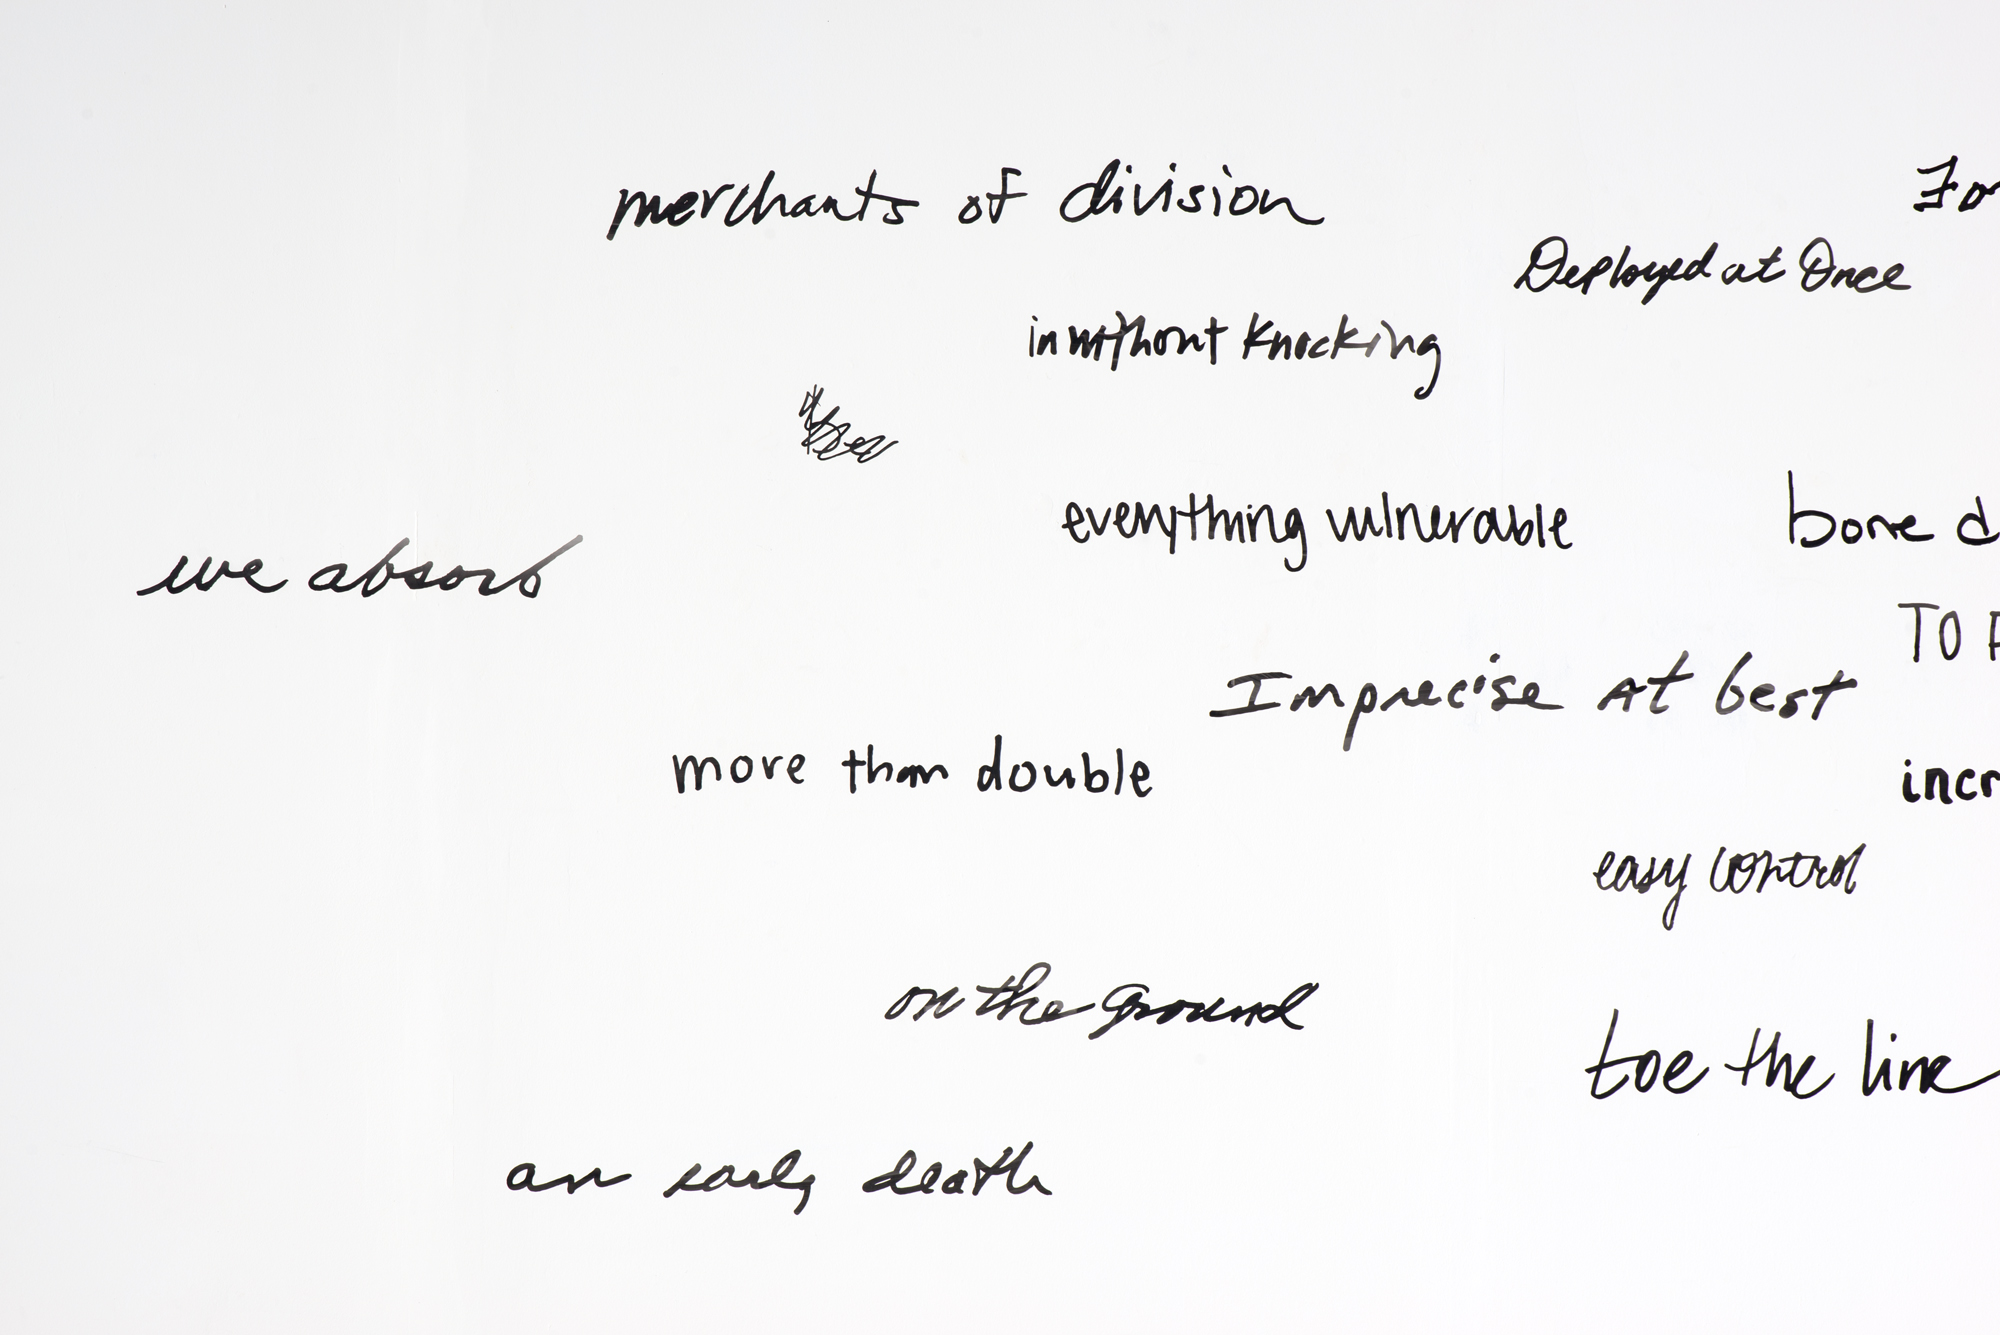 merchants of division
Deployed at Once
in without knocking
everything vulnerable
bone
we absorb
TO
Imprecise At best
more than double
easy control
on the ground
toe the line
an early death